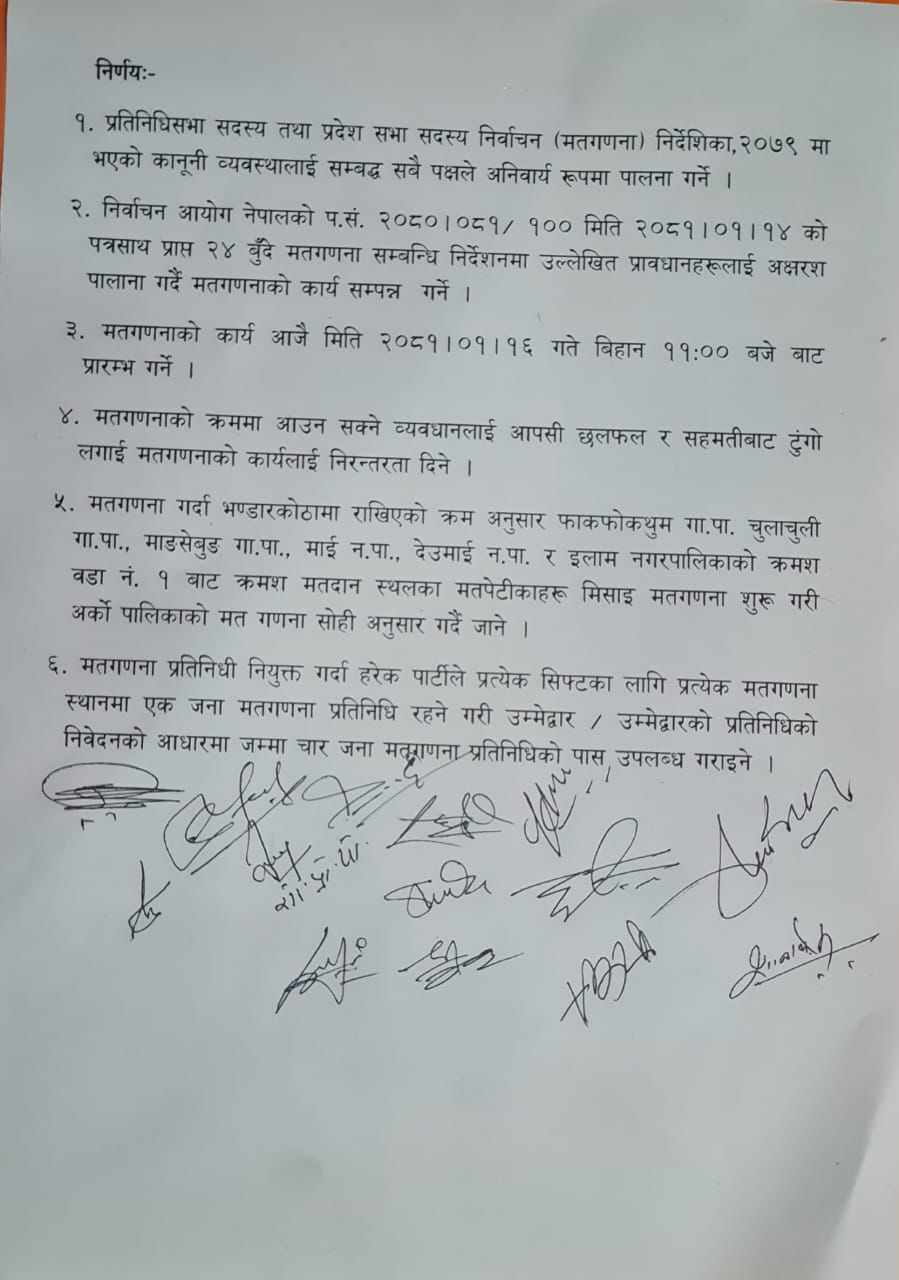 निर्णयः-
१. प्रतिनिधिसभा सदस्य तथा प्रदेश सभा सदस्य निर्वाचन (मतगणना) निर्देशिका,२०७९ मा
भएको कानूनी व्यवस्थालाई सम्बद्ध सबै पक्षले अनिवार्य रूपमा पालना गर्ने ।
२. निर्वाचन आयोग नेपालको प.सं. २०८०।०८१/ १०० मिति २०८१।०१।१४ को
पत्रसाथ प्राप्त २४ बुँदे मतगणना सम्बन्धि निर्देशनमा उल्लेखित प्रावधानहरूलाई अक्षरश
पालाना गर्दै मतगणनाको कार्य सम्पन्न गर्ने ।
३. मतगणनाको कार्य आजै मिति २०८१।०१।१६ गते बिहान ११:०० बजे बाट
प्रारम्भ गर्ने ।
४. मतगणनाको क्रममा आउन सक्ने व्यवधानलाई आपसी छलफल र सहमतीबाट टुंगो
लगाई मतगणनाको कार्यलाई निरन्तरता दिने ।
५. मतगणना गर्दा भण्डारकोठामा राखिएको क्रम अनुसार फाकफोकथुम गा.पा. चुलाचुली
गा.पा., माङसेबुङ गा.पा., माई न.पा., देउमाई न.पा. र इलाम नगरपालिकाको क्रमश
वडा नं. १ बाट क्रमश मतदान स्थलका मतपेटीकाहरू मिसाइ मतगणना शुरू गरी
अर्को पालिकाको मत गणना सोही अनुसार गर्दै जाने ।
६. मतगणना प्रतिनिधी नियुक्त गर्दा हरेक पार्टीले प्रत्येक सिफ्टका लागि प्रत्येक मतगणना
स्थानमा एक जना मतगणना प्रतिनिधि रहने गरी उम्मेद्वार / उम्मेद्वारको प्रतिनिधिको
निवेदनको आधारमा जम्मा चार जना मतगणना प्रतिनिधिको पास उपलब्ध गराइने ।